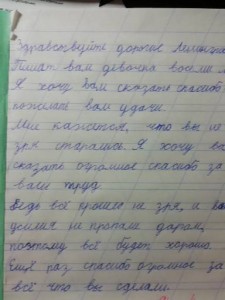 Здравствуйте дорогие
Пишет вам девочка восьми
Я хочу вам сказать спасибо
пожелать вам удачи.
Мне кажется, что вы не
зря старались. Я хочу ва
сказать огромное спасибо за
ваши труды.
Ведь всё прошло не зря, и ва
усилия не пропали даром,
поэтому всё будет хорошо
Ещё раз спасибо огромное за
всё что вы сделали.